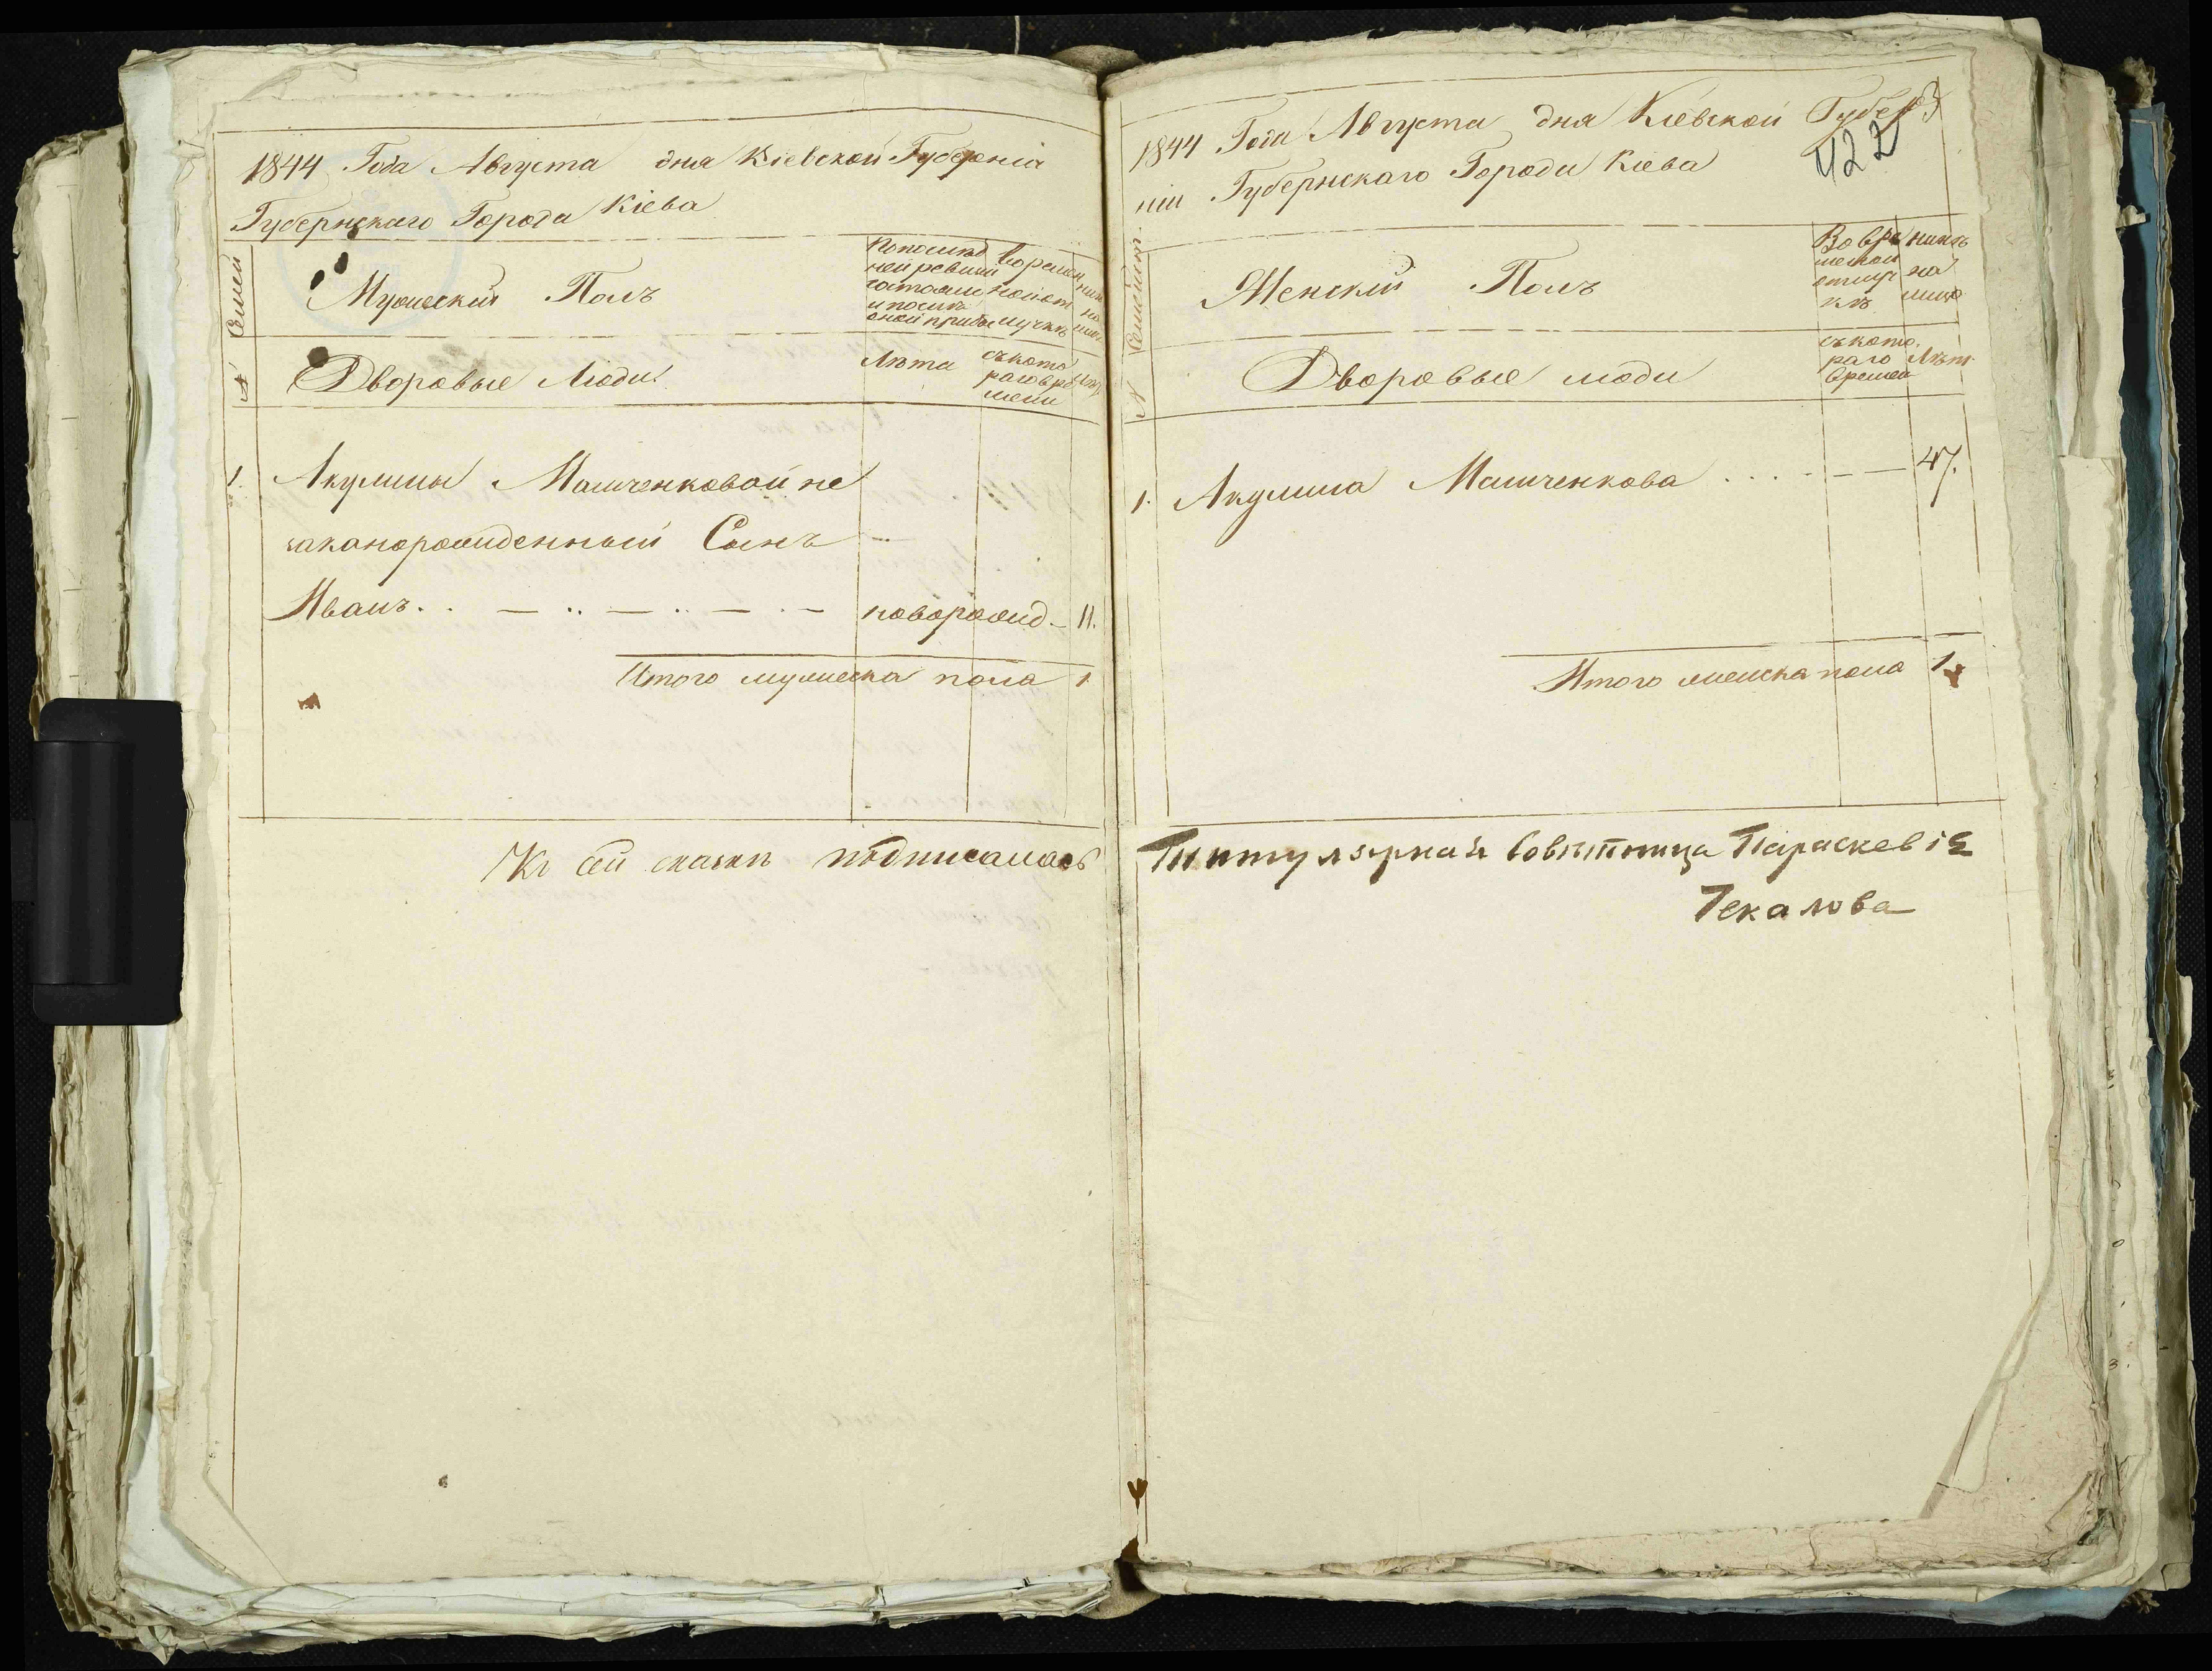 1844 Года Августа дня Кіевской Губерніи
Губернскаго Города Кіева
Семей
Мужескій Полъ
По послѣд
ней ревизіи
состояли
и послѣ
оной прибы
Во времен
ной от
лучкѣ
№
Дворовые Люди
Лѣта
съ кото
раго вре
мени
1. Акулины Машченковой не
законорожденный Сынъ —
Иванъ новорожд. 11.
Итого мужеска пола 1
Къ сей сказкѣ подписалась
1844 Года Августа дня Кіевской Губер
422
ніи Губернскаго Города Кіева
Женскій Полъ
Во вре
менной
отлуч
кѣ
нынѣ
на
лицо
№
Дворовые люди
съ кото
раго
времен
Лѣт
1. Акулина Машченкова 47.
Итого женска пола 1
Титулярная Совѣтница Параскевія
Чекалова